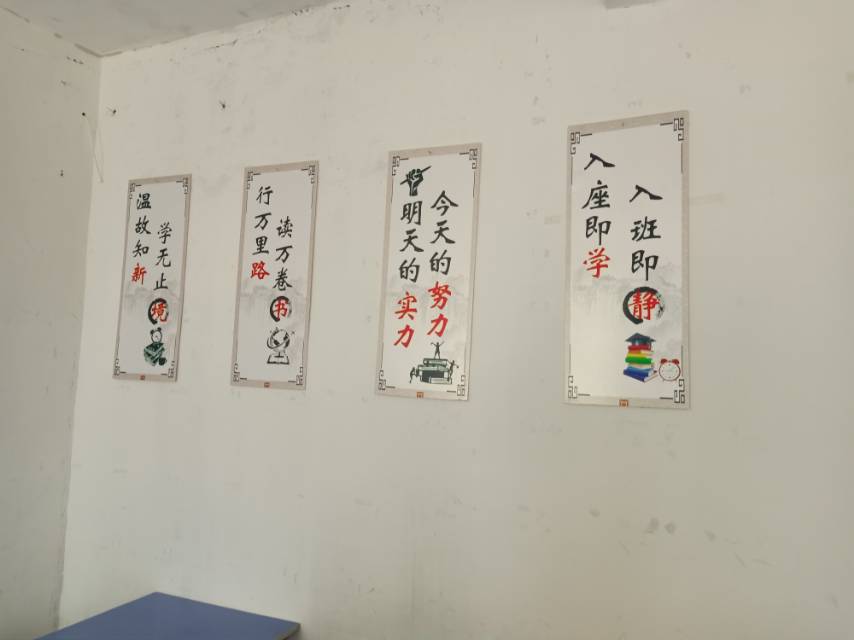 学无止境
温故知新
读万卷书
行万里路
今天的努力
明天的实力
入班即静
入座即学